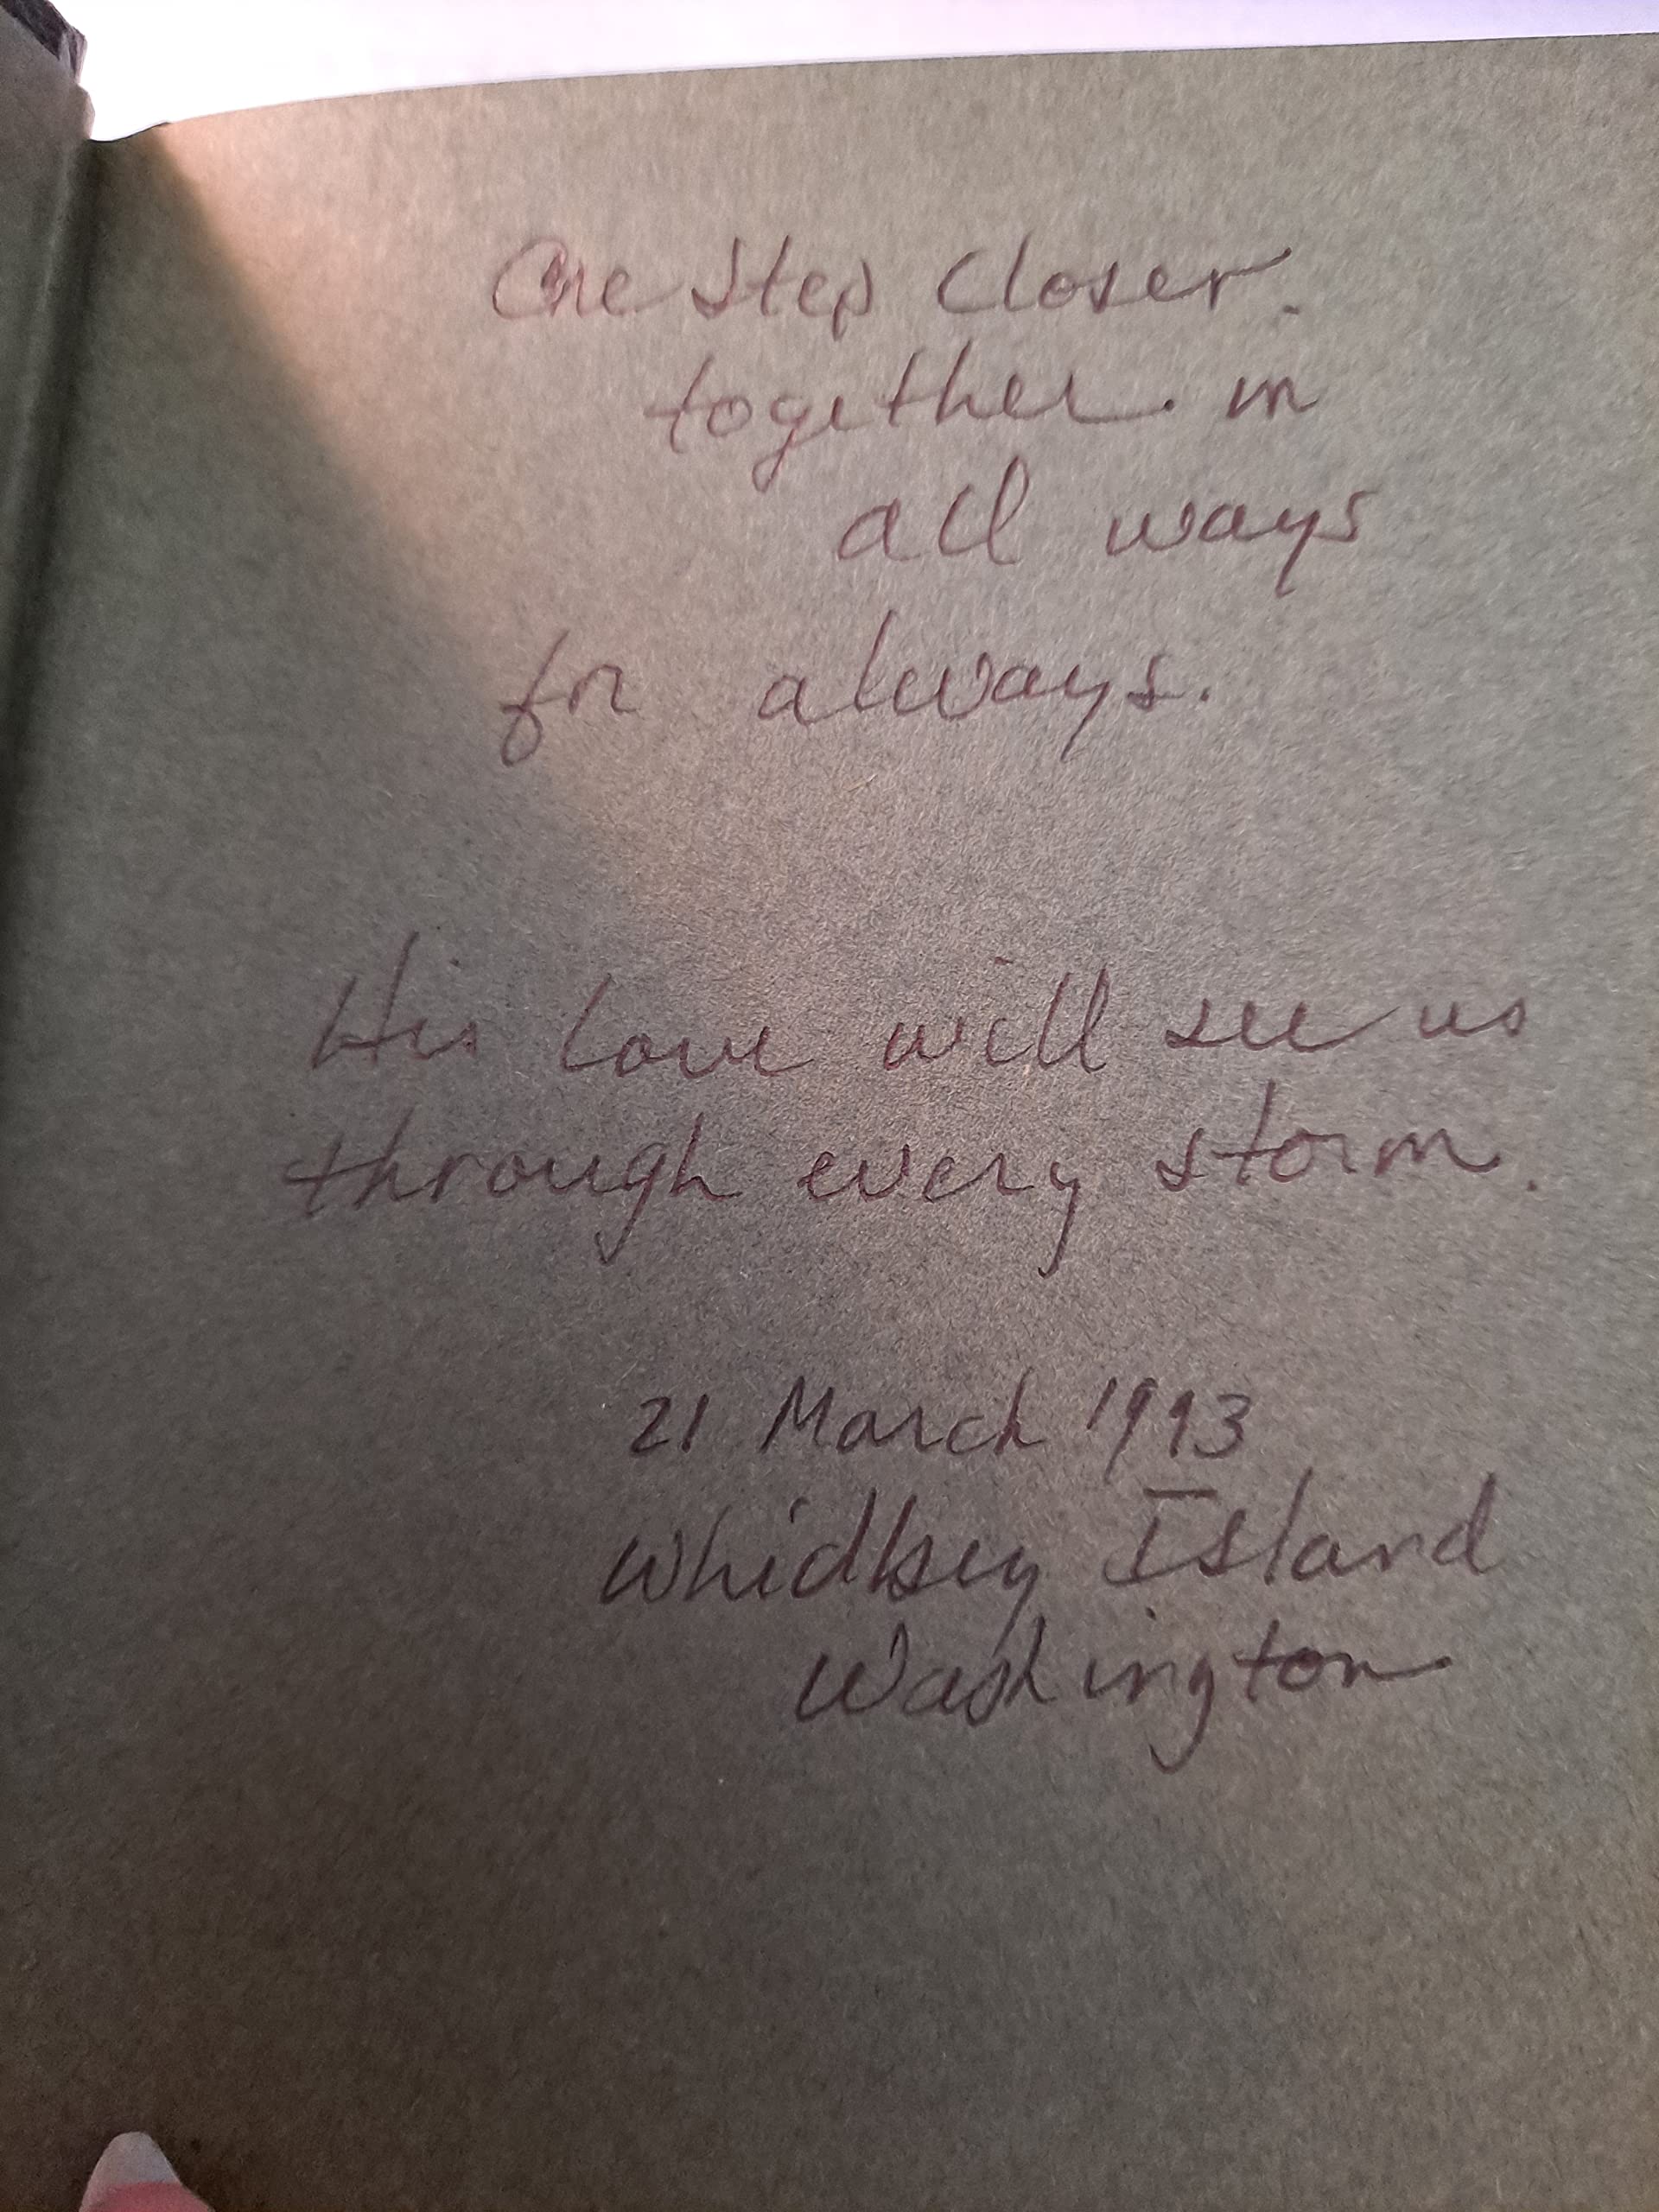 One Step Closer.
together. in
all ways
for always.
His love will see us
through every storm.
21 March 1993
Whidbey Island
Washington